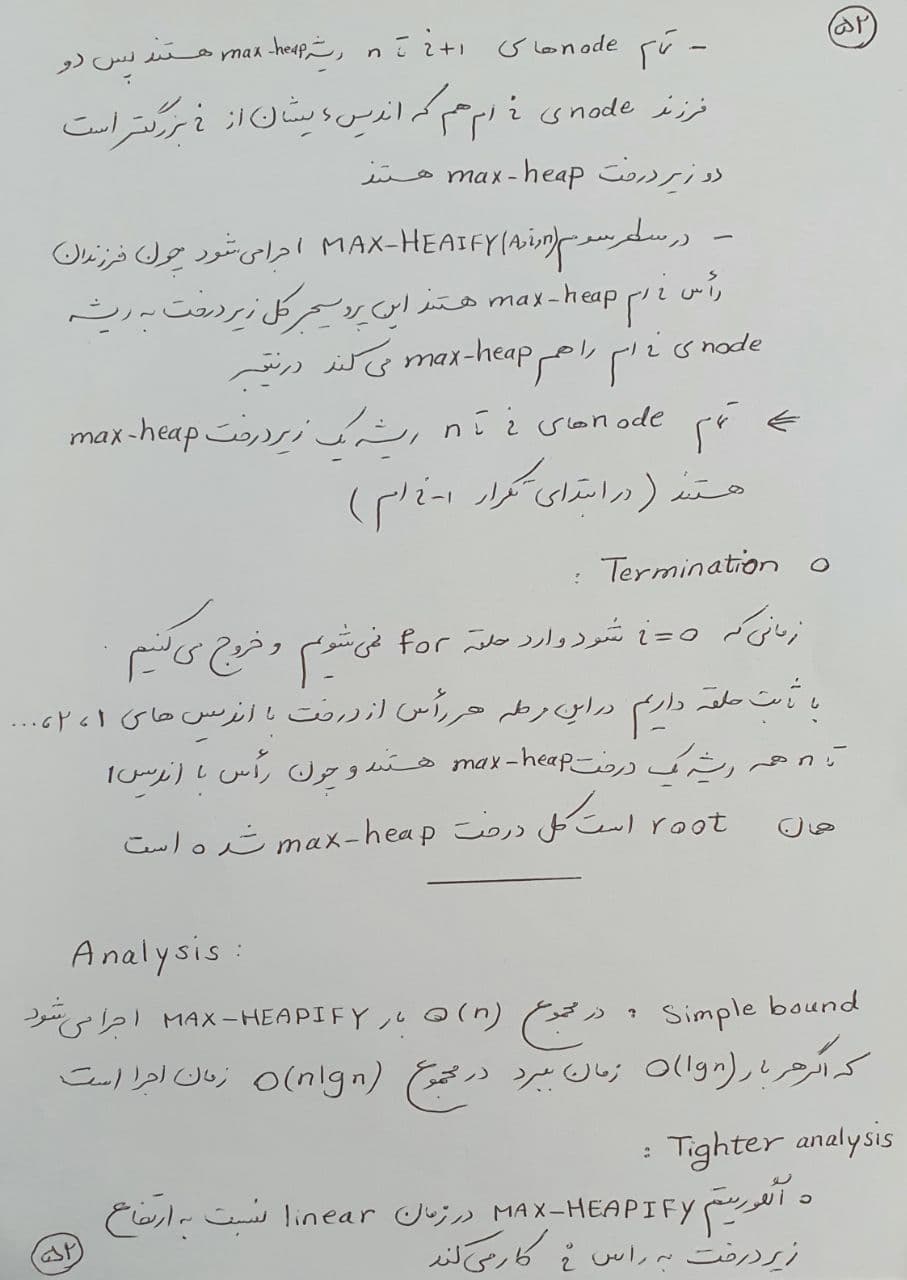 ۵۲
- تمام nodeهای i+1 تا n ریشه max-heap هستند پس دو
فرزند nodeی i ام هم که اندیس‌ایشان از i بزرگتر است
دو زیر درخت max-heap هستند
- در سطر سوم MAX-HEAIFY(A,i,n) اجرا می‌شود چون فرزندان
رأس i ام max-heap هستند این پروسیجر کل زیر درخت به ریشه
nodeی i ام را هم max-heap می‌کند در نتیجه
⇐ تمام nodeهای i تا n ریشه یک زیر درخت max-heap
هستند (در ابتدای تکرار i-1 ام)
o Termination :
زمانی که i=0 شود وارد حلقه for نمی‌شویم و خروج می‌کنیم.
با ثابت حلقه داریم در این مرحله هر رأس از درخت با اندیس های ۱، ۲، ...
تا n همه ریشه یک درخت max-heap هستند و چون رأس با اندیس ۱
همان root است کل درخت max-heap شده است
Analysis :
Simple bound : در مجموع Θ(n) بار MAX-HEAPIFY اجرا می‌شود
که اگر هر بار O(lgn) زمان ببرد در مجموع O(nlgn) زمان اجرا است
Tighter analysis :
o الگوریتم MAX-HEAPIFY در زمان linear نسبت به ارتفاع
زیر درخت به راس i کار می‌کند
۵۲